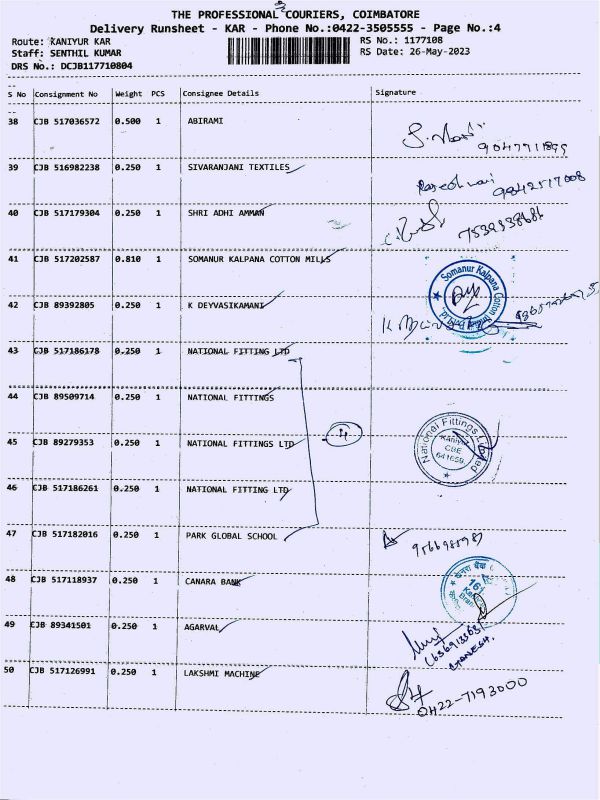 THE PROFESSIONAL COURIERS, COIMBATORE
Delivery Runsheet - KAR - Phone No.:0422-3505555 - Page No.:4
Route: KANIYUR KAR
RS No.: 1177108
Staff: SENTHIL KUMAR
RS Date: 26-May-2023
DRS No.: DCJB117710804
S No Consignment No Weight PCS Consignee Details Signature
38 CJB 517036572 0.500 1 ABIRAMI
39 CJB 516982238 0.250 1 SIVARANJANI TEXTILES
9842517008
40 CJB 517179304 0.250 1 SHRI ADHI AMMAN
41 CJB 517202587 0.810 1 SOMANUR KALPANA COTTON MILLS
Somanur Kalpana Cotton
42 CJB 89392805 0.250 1 K DEYVASIKAMANI
43 CJB 517186178 0.250 1 NATIONAL FITTING LTD
44 CJB 89509714 0.250 1 NATIONAL FITTINGS
National Fittings Limited
KANIYUR
CBE
641659.
45 CJB 89279353 0.250 1 NATIONAL FITTINGS LTD
46 CJB 517186261 0.250 1 NATIONAL FITTING LTD
47 CJB 517182016 0.250 1 PARK GLOBAL SCHOOL
48 CJB 517118937 0.250 1 CANARA BANK
49 CJB 89341501 0.250 1 AGARVAL
50 CJB 517126991 0.250 1 LAKSHMI MACHINE
0422-7193000